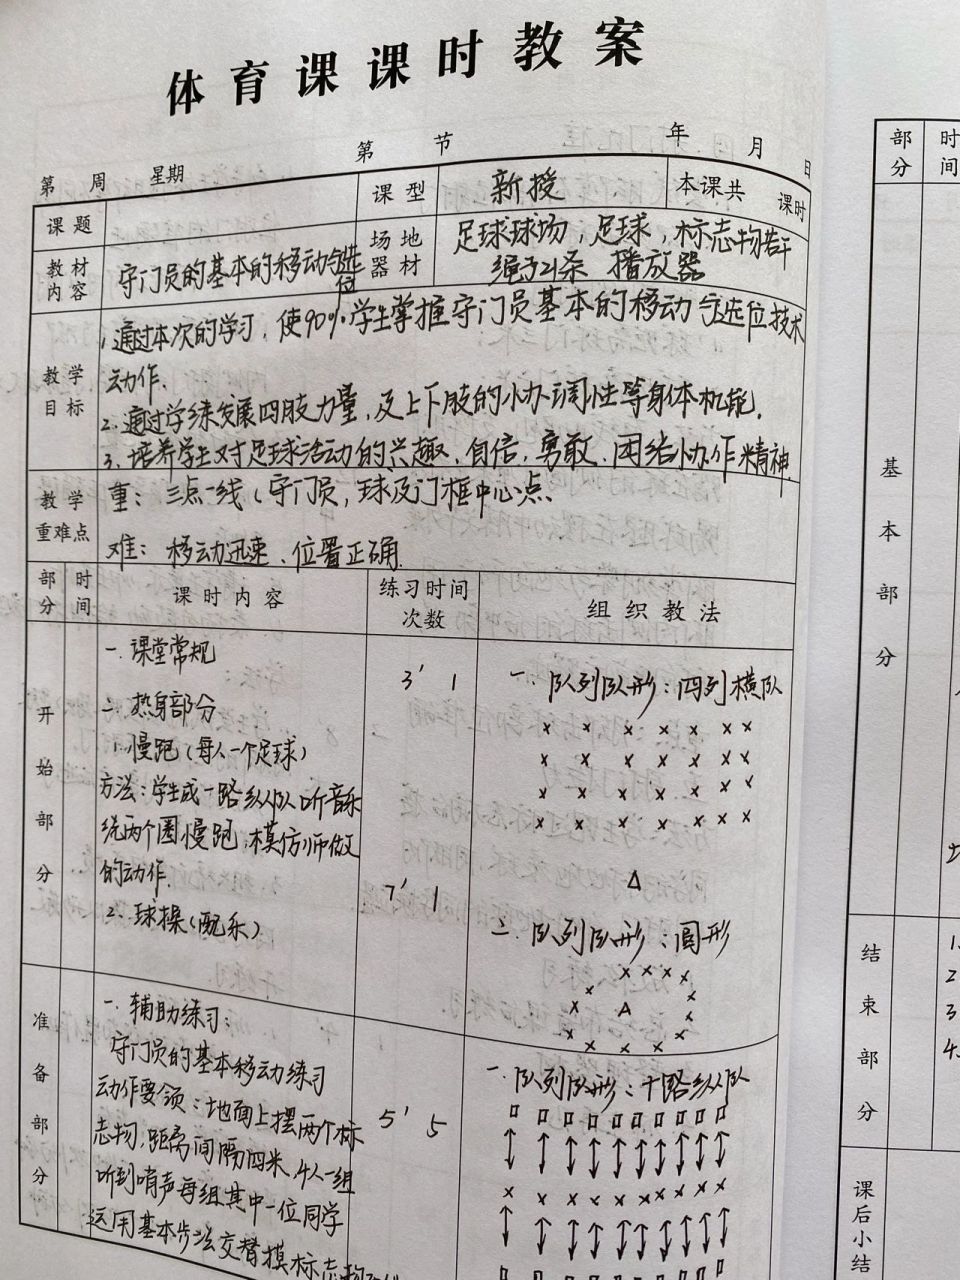 体育课课时教案
第 周 星期 第 节 年 月 日
课题 课型 新授 本课共 课时
教材内容 守门员的基本的移动与选位 场地器材 足球球场,足球,标志物若干
绳子21条 播放器
教学目标
1.通过本次的学习,使90%学生掌握守门员基本的移动与选位技术
动作.
2.通过学练发展四肢力量,及上下肢的协调性等身体机能.
3.培养学生对足球活动的兴趣、自信,勇敢、团结协作精神.
教学重难点
重:三点一线(守门员,球及门框中心点、
难:移动迅速、位置正确.
部分 时间 课时内容 练习时间 次数 组织教法
开始部分
一.课堂常规
3' 1
一.队列队形:四列横队
二.热身部分
1.慢跑(每人一个足球)
方法:学生成一路纵队听音乐
绕两个圈慢跑,模仿师做
的动作.
7' 1
2.球操(配乐)
二.队列队形:圆形
准备部分
一.辅助练习:
守门员的基本移动练习
动作要领:地面上摆两个标
志物,距离间隔四米、4人一组
听到哨声每组其中一位同学
运用基本步法交替摸标志物
5' 5
一.队列队形:十路纵队
部分 时间
基本部分
结束部分
1.
2
3
4.
课后小结